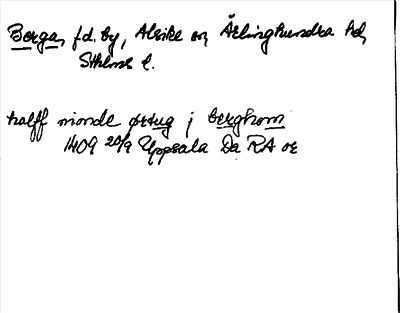 Berga, f.d. by, Alsike sn, Ärlinghundra hd,
Sthlms l.
halff nionde ørtug j berghom
1409 20/9 Uppsala Da RA or